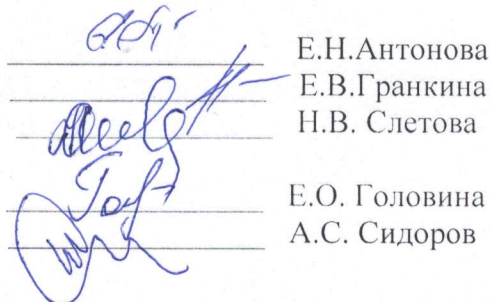 Е.Н.Антонова
Е.В.Гранкина
Н.В. Слетова
Е.О. Головина
А.С. Сидоров